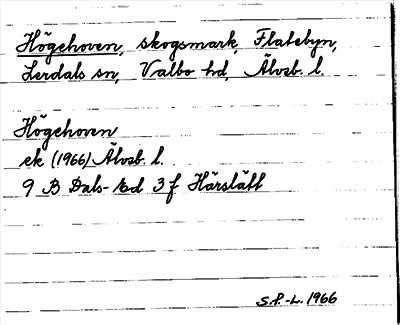 Högehoven, skogsmark, Flatebyn,
Lerdals sn, Valbo hd, Älvsb. l.
Högehoven
ek (1966) Älvsb. l.
9 B Dals-Ed 3 f Härslätt
S.F.-L. 1966